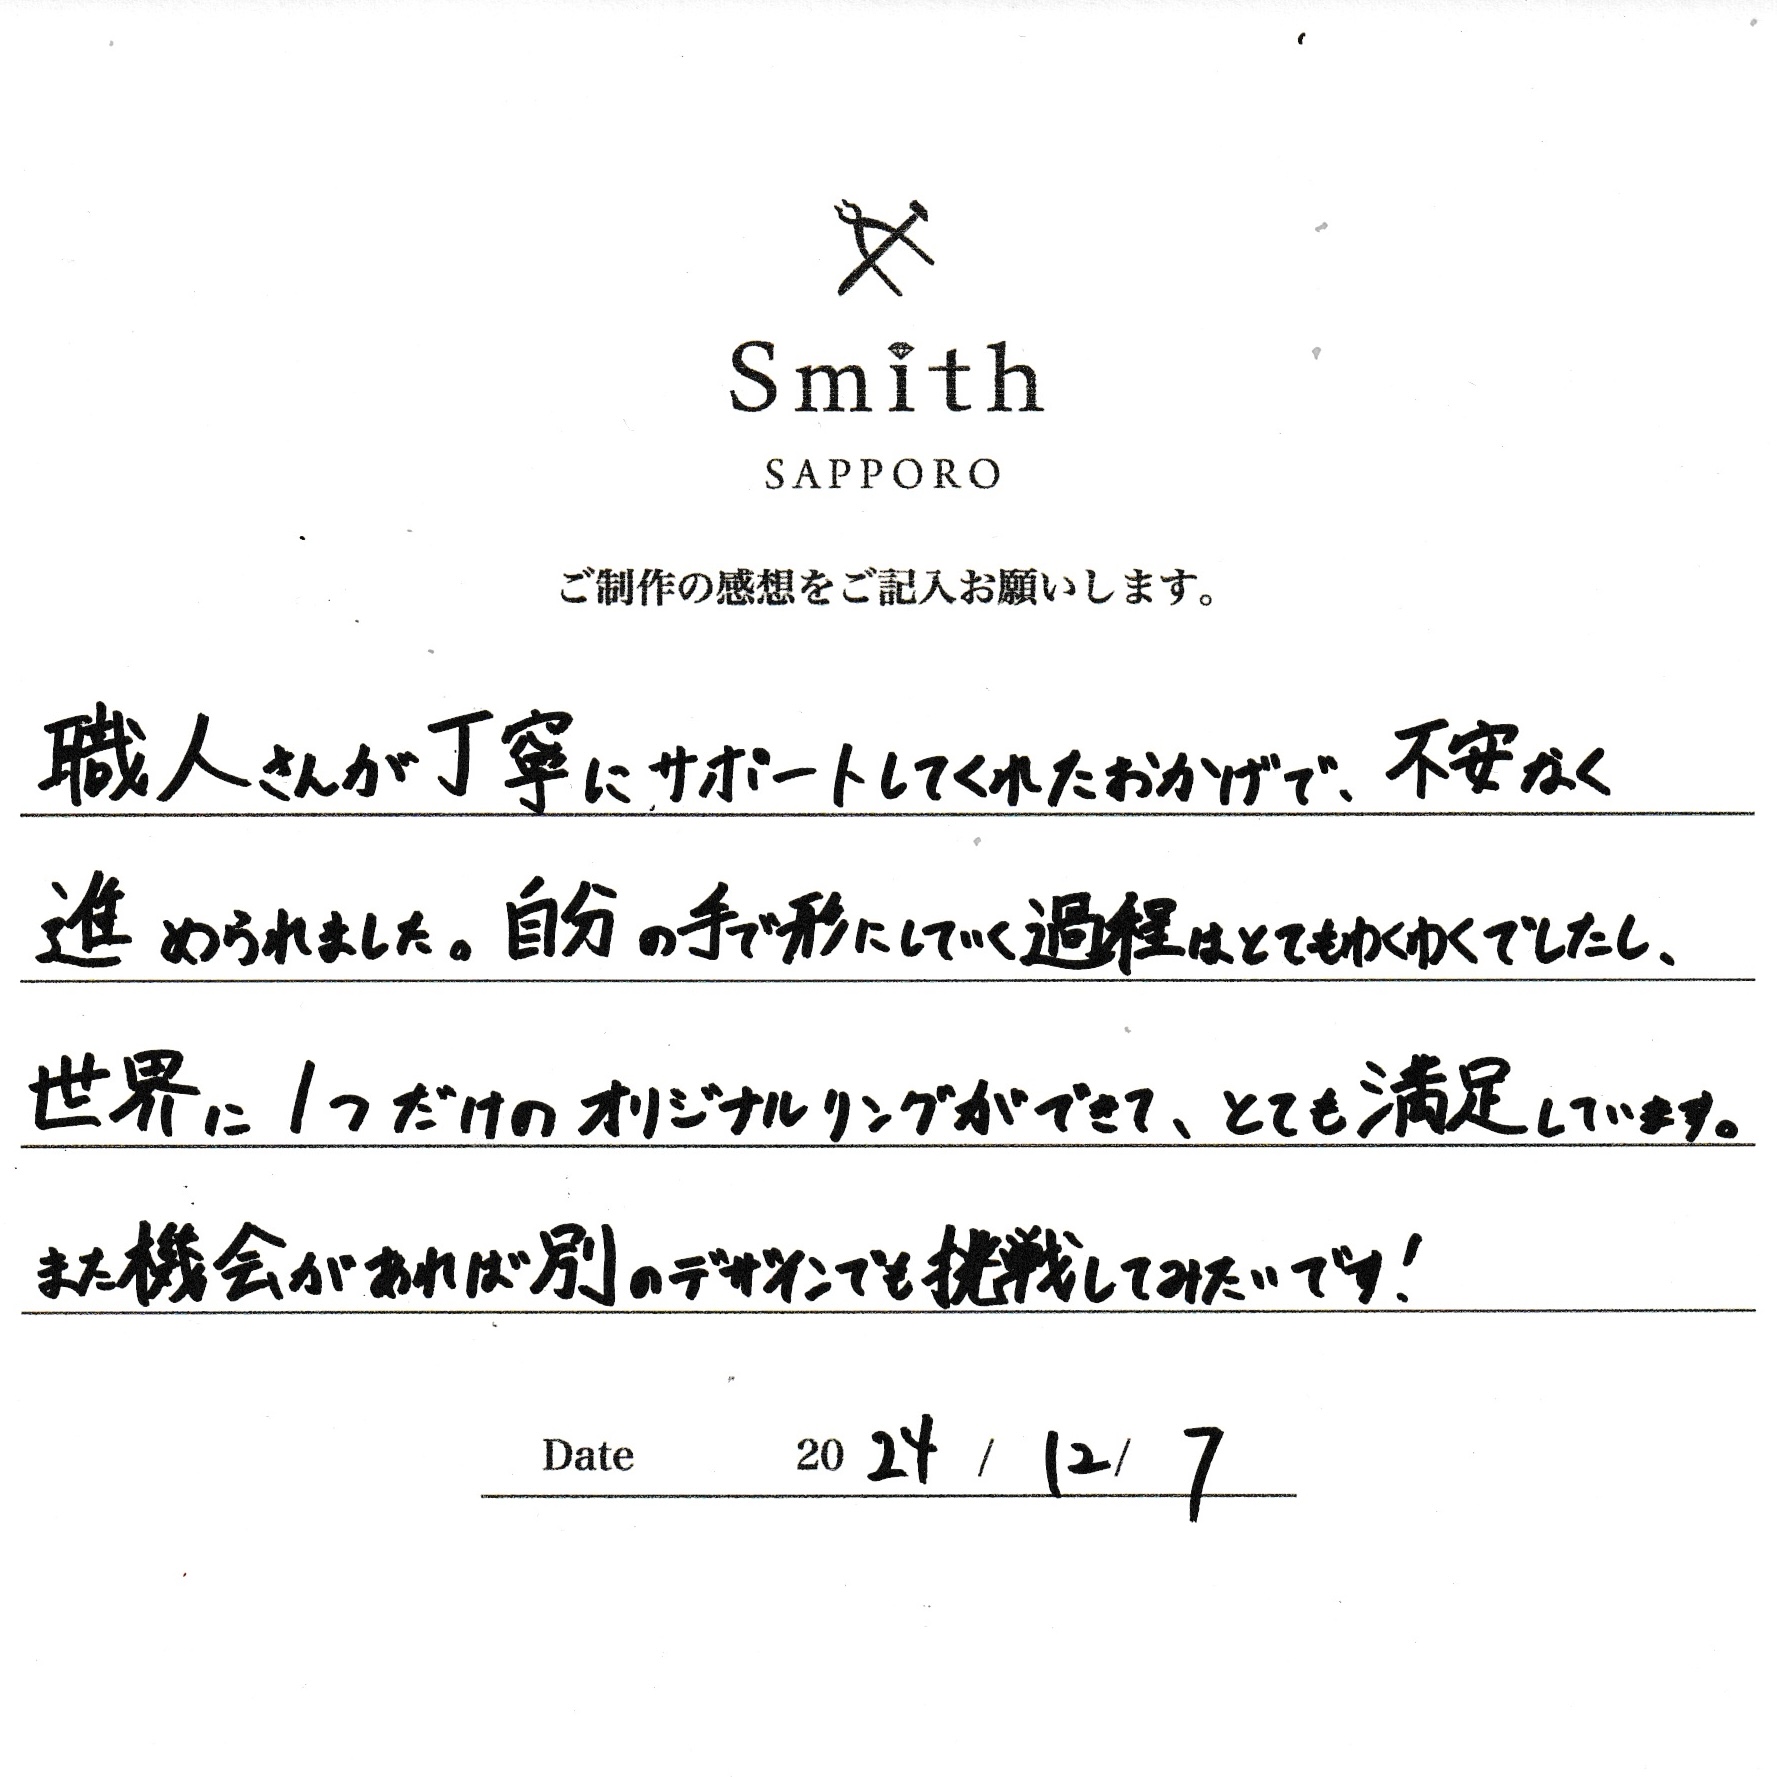 Smith
SAPPORO
ご制作の感想をご記入お願いします。
職人さんが丁寧にサポートしてくれたおかげで、不安なく
進められました。自分の手で形にしていく過程はとてもわくわくでしたし、
世界に1つだけのオリジナルリングができて、とても満足しています。
また機会があれば別のデザインでも挑戦してみたいです!
Date 2024 / 12 / 7